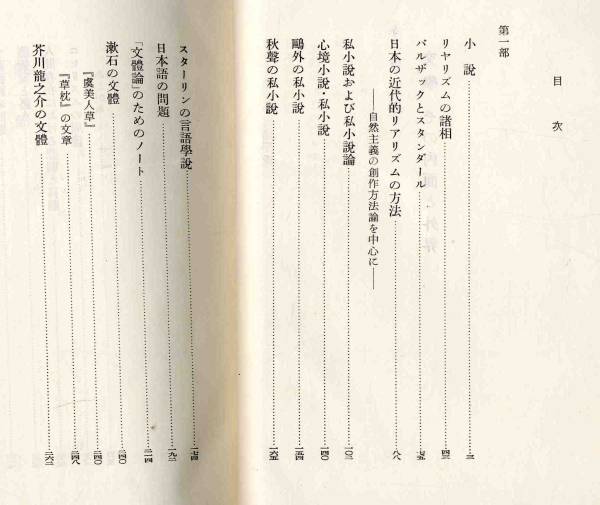 目次
第一部
小說 三
リヤリズムの諸相 四三
バルザックとスタンダール 七五
日本の近代的リアリズムの方法 八八
――自然主義の創作方法論を中心に――
私小說および私小說論 一〇三
心境小說・私小說 一四〇
鷗外の私小說 一五四
秋聲の私小說 一六五
スターリンの言語學說 一七四
日本語の問題 一九三
「文體論」のためのノート 二一四
漱石の文體 二四〇
『虞美人草』 二四〇
『草枕』の文章 二四八
芥川龍之介の文體 二六三